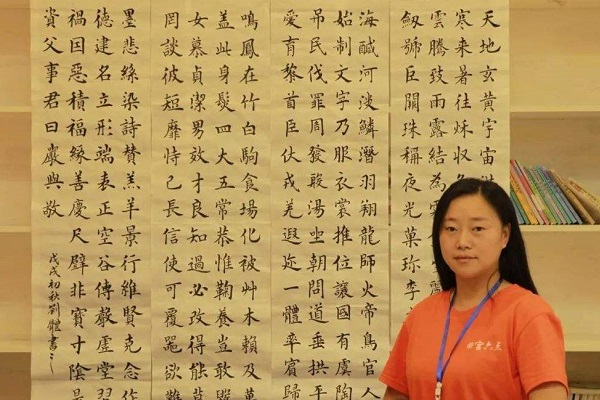 天地玄黃宇宙
寒来暑往秌収
雲騰致雨露結為
劔號巨闕珠稱夜光菓珎李
海醎河淡鱗潛羽翔龍師火帝鳥官人
始制文字乃服衣裳推位讓國有虞陶
吊民伐罪周發殷湯坐朝問道垂拱平
愛育黎首臣伏戎羌遐迩一體率賓歸
鳴鳳在竹白駒食場化被艸木賴及
盖此身髮四大五常恭惟鞠養豈敢
女慕貞潔男效才良知過必改得能莫
罔談彼短靡恃己長信使可覆噐欲難
墨悲絲染詩賛羔羊景行維賢克念作
德建名立形端表正空谷傳聲虛堂習
禍因惡積福緣善慶尺璧非寶寸陰是
資父事君曰嚴與敬
戊戌初秋劉體書之